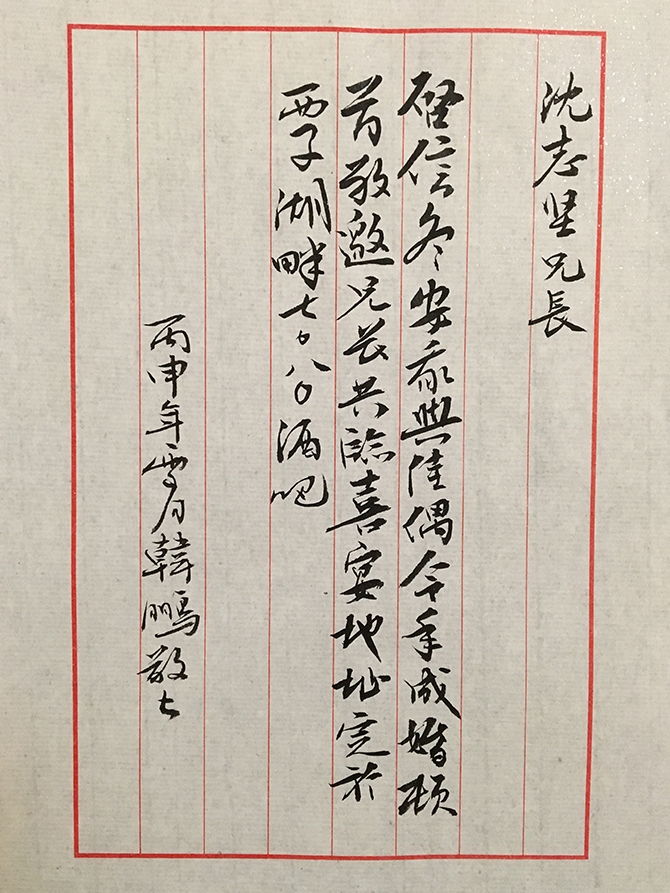 沈志坚兄長
展信冬安我與佳偶今年成婚頓
首敬邀兄长共臨喜宴地址定於
西子湖畔七〇八〇酒吧
丙申年雪月韓鵬敬上